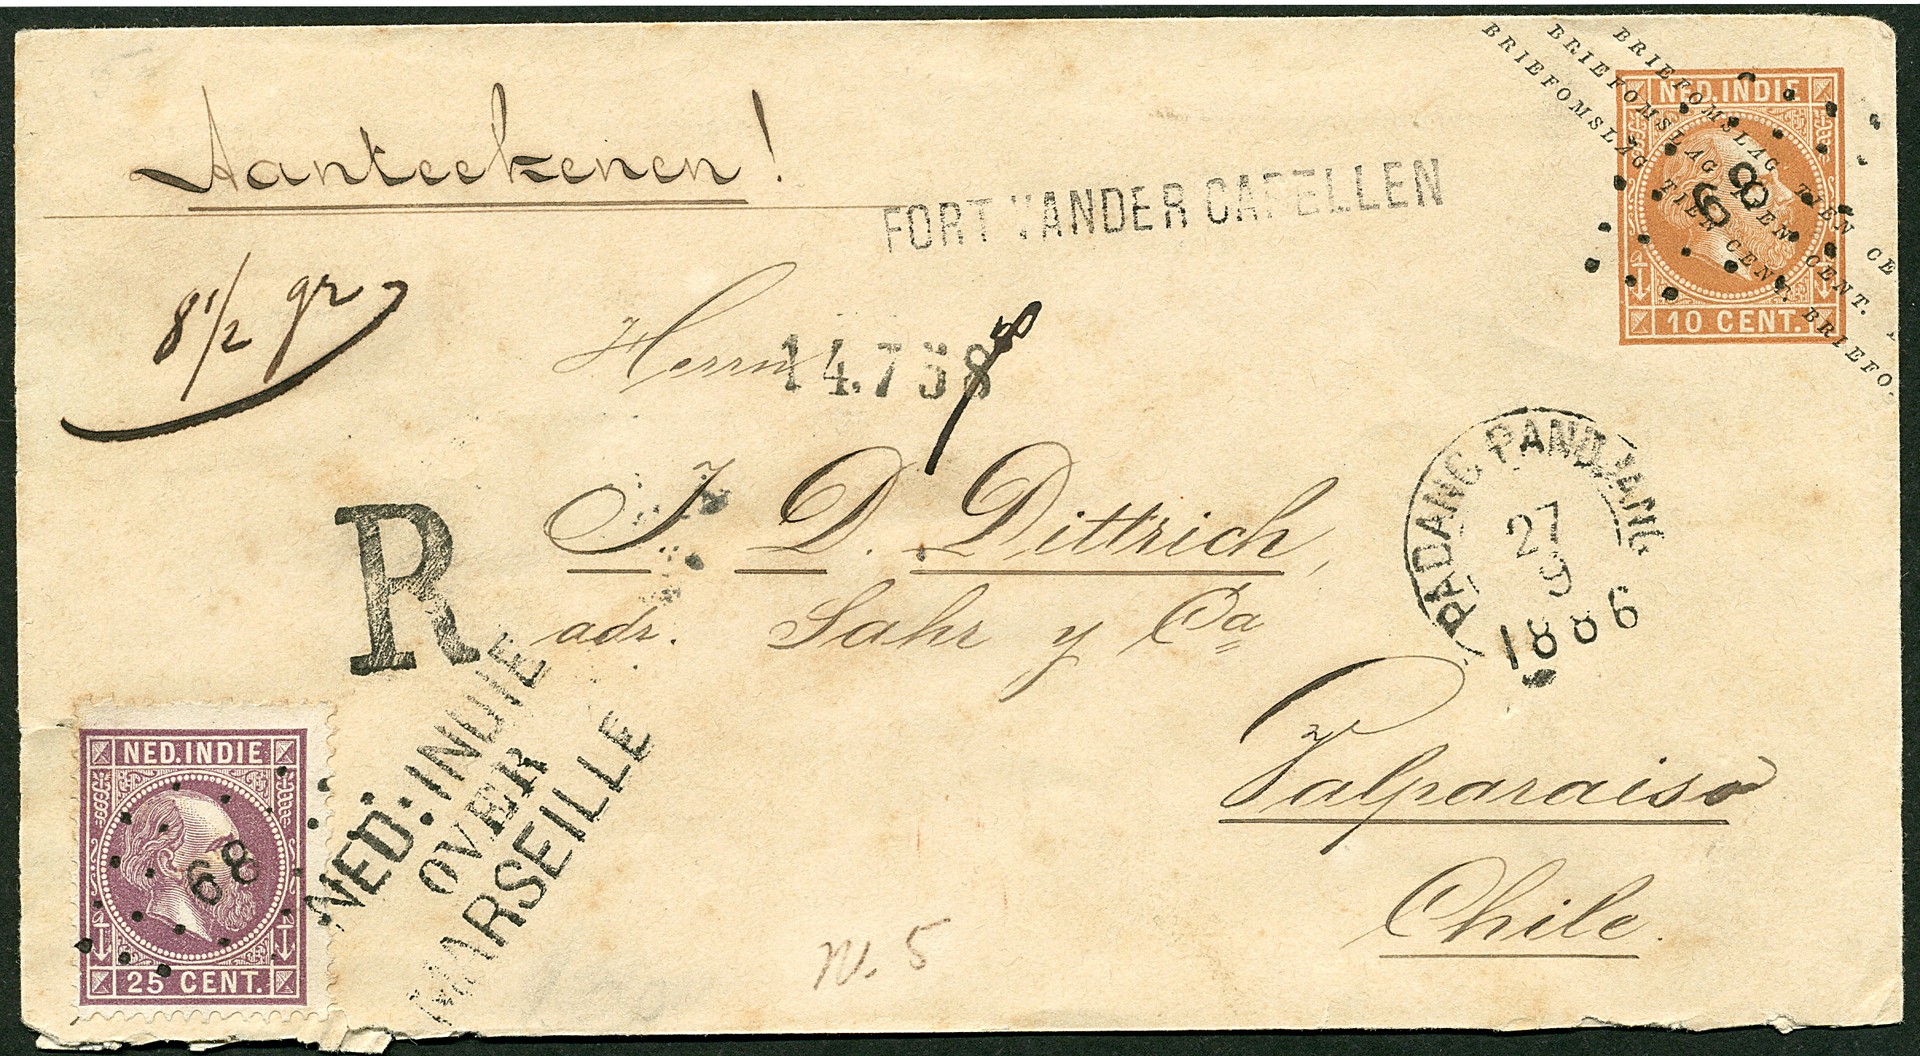 BRIEFOMSLAG TIEN CENT. 
BRIEFOMSLAG TIEN CENT.
BRIEFOMSLAG TIEN CENT. BRIEFO
NED. INDIE
68
10 CENT.
Aanteekenen!
FORT VANDER CAPELLEN
8 1/2 gr
Herrn
14.758
J. D. Dittrich,
adr. Sahr y Ca
Valparaiso
Chile.
PADANG PANDJANG
27
9
1886
R
NED: INDIE
OVER
MARSEILLE
NED. INDIE
68
25 CENT.
N. 5